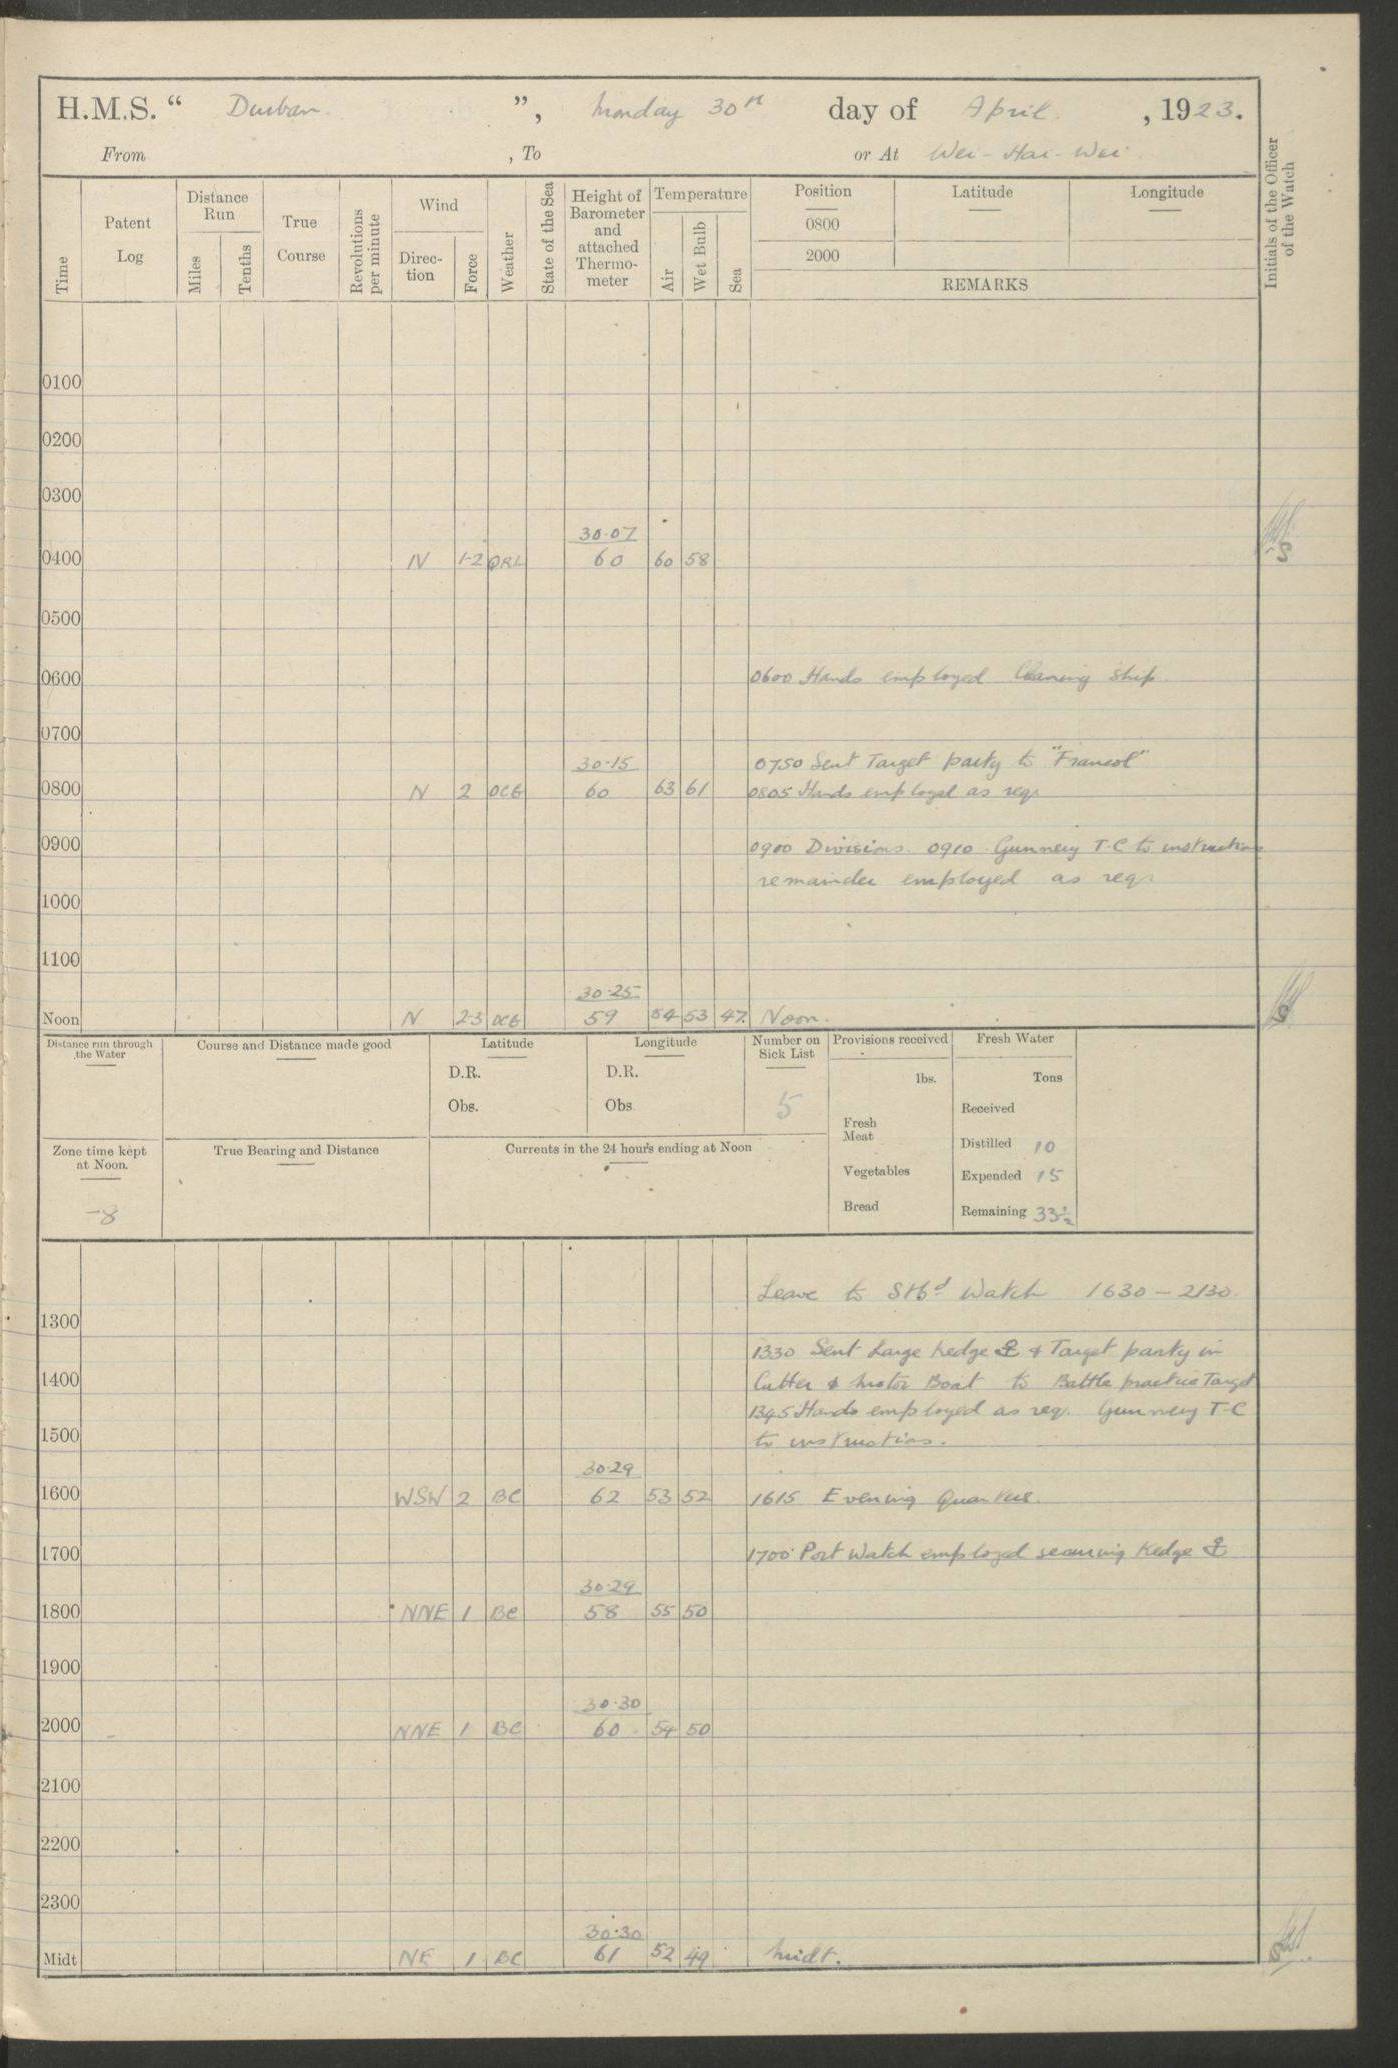 H.M.S. “ Durban. ”, Monday 30th day of April, 1923.
From , To or At Wei-Hai-Wei.
Initials of the Officer of the Watch
Time
Patent Log
Distance Run
Miles
Tenths
True Course
Revolutions per minute
Wind
Direc-tion
Force
Weather
State of the Sea
Height of Barometer and attached Thermo-meter
Temperature
Air
Wet Bulb
Sea
Position Latitude Longitude
0800
2000
REMARKS
0100
0200
0300
30.07
0400 N 1-2 ORL 60 60 58
0500
0600 0600 Hands employed Cleaning Ship
0700
30.15 0750 Sent Target party to "Francol"
0800 N 2 OCG 60 63 61 0805 Hands employed as req.
0900 0900 Divisions. 0910 Gunnery T.C to instruction
remainder employed as req.
1000
1100
30.25
Noon N 2-3 OCG 59 54 53 47 Noon.
Distance run through the Water
Course and Distance made good
Latitude
D.R.
Obs.
Longitude
D.R.
Obs
Number on Sick List
5
Provisions received
lbs.
Fresh Meat
Vegetables
Bread
Fresh Water
Tons
Received
Distilled 10
Expended 15
Remaining 33½
Zone time kept at Noon.
-8
True Bearing and Distance
Currents in the 24 hours ending at Noon
Leave to Stbd Watch 1630 - 2130.
1300
1330 Sent Large Kedge ⚓ & Target party in
1400 Cutter & Motor Boat to Battle practice Target
1345 Hands employed as req. Gunnery T-C
1500 to instruction.
30.29
1600 WSW 2 BC 62 53 52 1615 Evening Quarters.
1700 1700 Port Watch employed securing Kedge ⚓
30.29
1800 NNE 1 BC 58 55 50
1900
30.30
2000 NNE 1 BC 60 54 50
2100
2200
2300
30.30
Midt NE 1 BC 61 52 49 Midt.